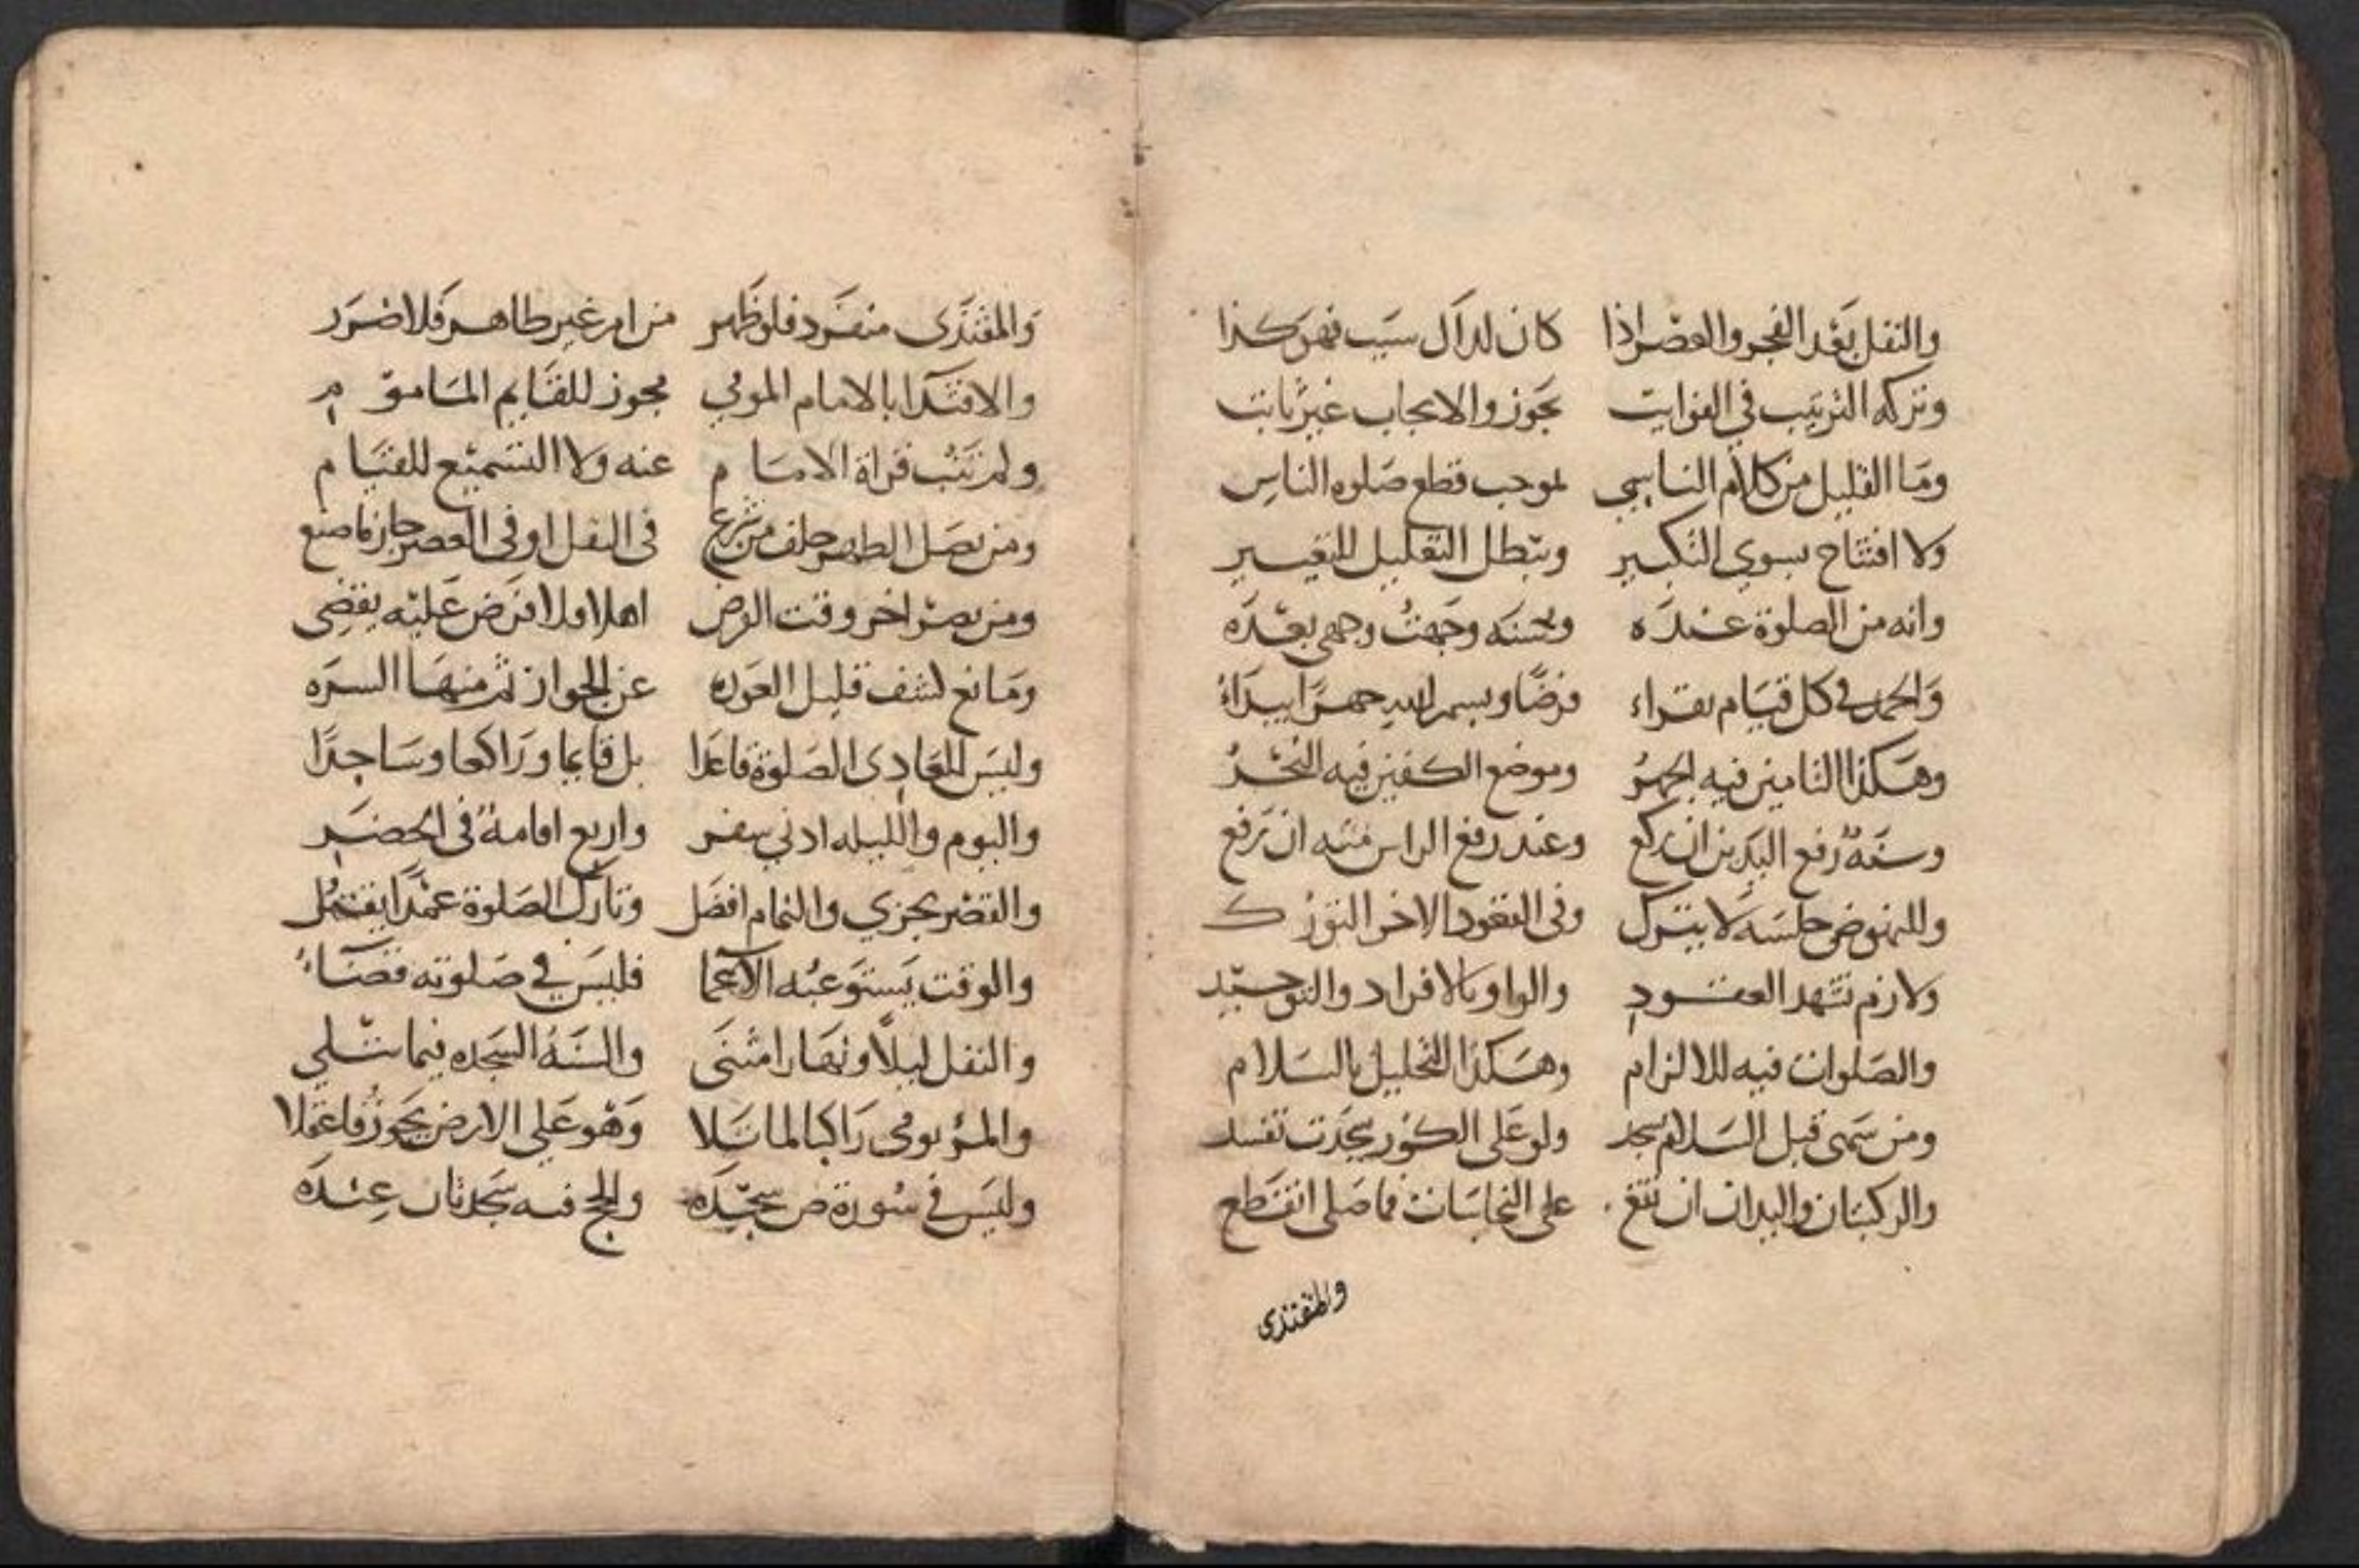 والنفل بَعْد الفجر والعصْر اذا كان لذاك سبَب فهو كذا
وتركه الترتيب في الفوايت يجَوز والايجاب غيرُ ثابت
ومَا القليل من كلام الناسي بموجب قطع صَلوه الناس
ولا افتتاح بسوي التكبير وتبطل التعليل للتغيير
وانه من الصلوة عنده وبحسنه وجَهتُ وجهي بعْدَه
وَالحمد في كل قيَام يقراء فرضًا وبسم الله جهرًا يبدَاءُ
وهَكذا التامين فيه الجهرُ وموضع الكفين فيه النَحْرُ
وسنةٌ رفع اليَدين ان ركع وعند رفع الراس منه ان رَفع
وللنهوض جلسَه لا يترك وفى القعود الاخر التورُك
ولازم تشهد القعود والواو بالافراد والتوحيْد
والصَلوات فيه للالزام وهكَذا التحليل بالسَلام
ومن سَهى قبل السَلام سجد ولو على الكور سجَدت تفسد
والركبتان واليدان ان تقع على النجاسَات فما صَلى انقطَع
والمقتدى
وَالمقتَدى منفَرد فلو ظَهر من امر غير طاهر فَلا ضرَر
والاقتدَا بالامام المومي يجوز للقَايم المَاموم
ولم تنُب قراة الامَام عنه ولا التسميْع للقيَام
ومن يصَل الظهر خلف من شرع فى النفل او فى العصر جاز ما صنع
ومن يصرْ اخر وقت الفرض اهلا فلا فرَض عَليْه يقضِى
ومَانع كشف قليل العَوره عن الجواز ثم منهَا السرَه
وليسَ للعَارِى الصَلوة قاعدَا بل قايما ورَاكعا وسَاجدًا
واليوم والليله ادني سفر واربع اقامةٌ فى الحضَر
والقصْر يجزي والتمام افضَل وتارك الصَلوة عمْدًا يقتلُ
والوقت يَستَوعبُه الاغما فليسَ في صَلوته قضَاءُ
والنفل ليلًا ونهَارا مثنَى والسنَةُ السجَده فيما تتْلي
والمرؤ يومى رَاكبا لما تَلا وَهْو عَلي الارض يَجوزُ فاعقلا
وليسَ في سُورة ص سجْدَه والحج فيه سَجدتان عِندَه